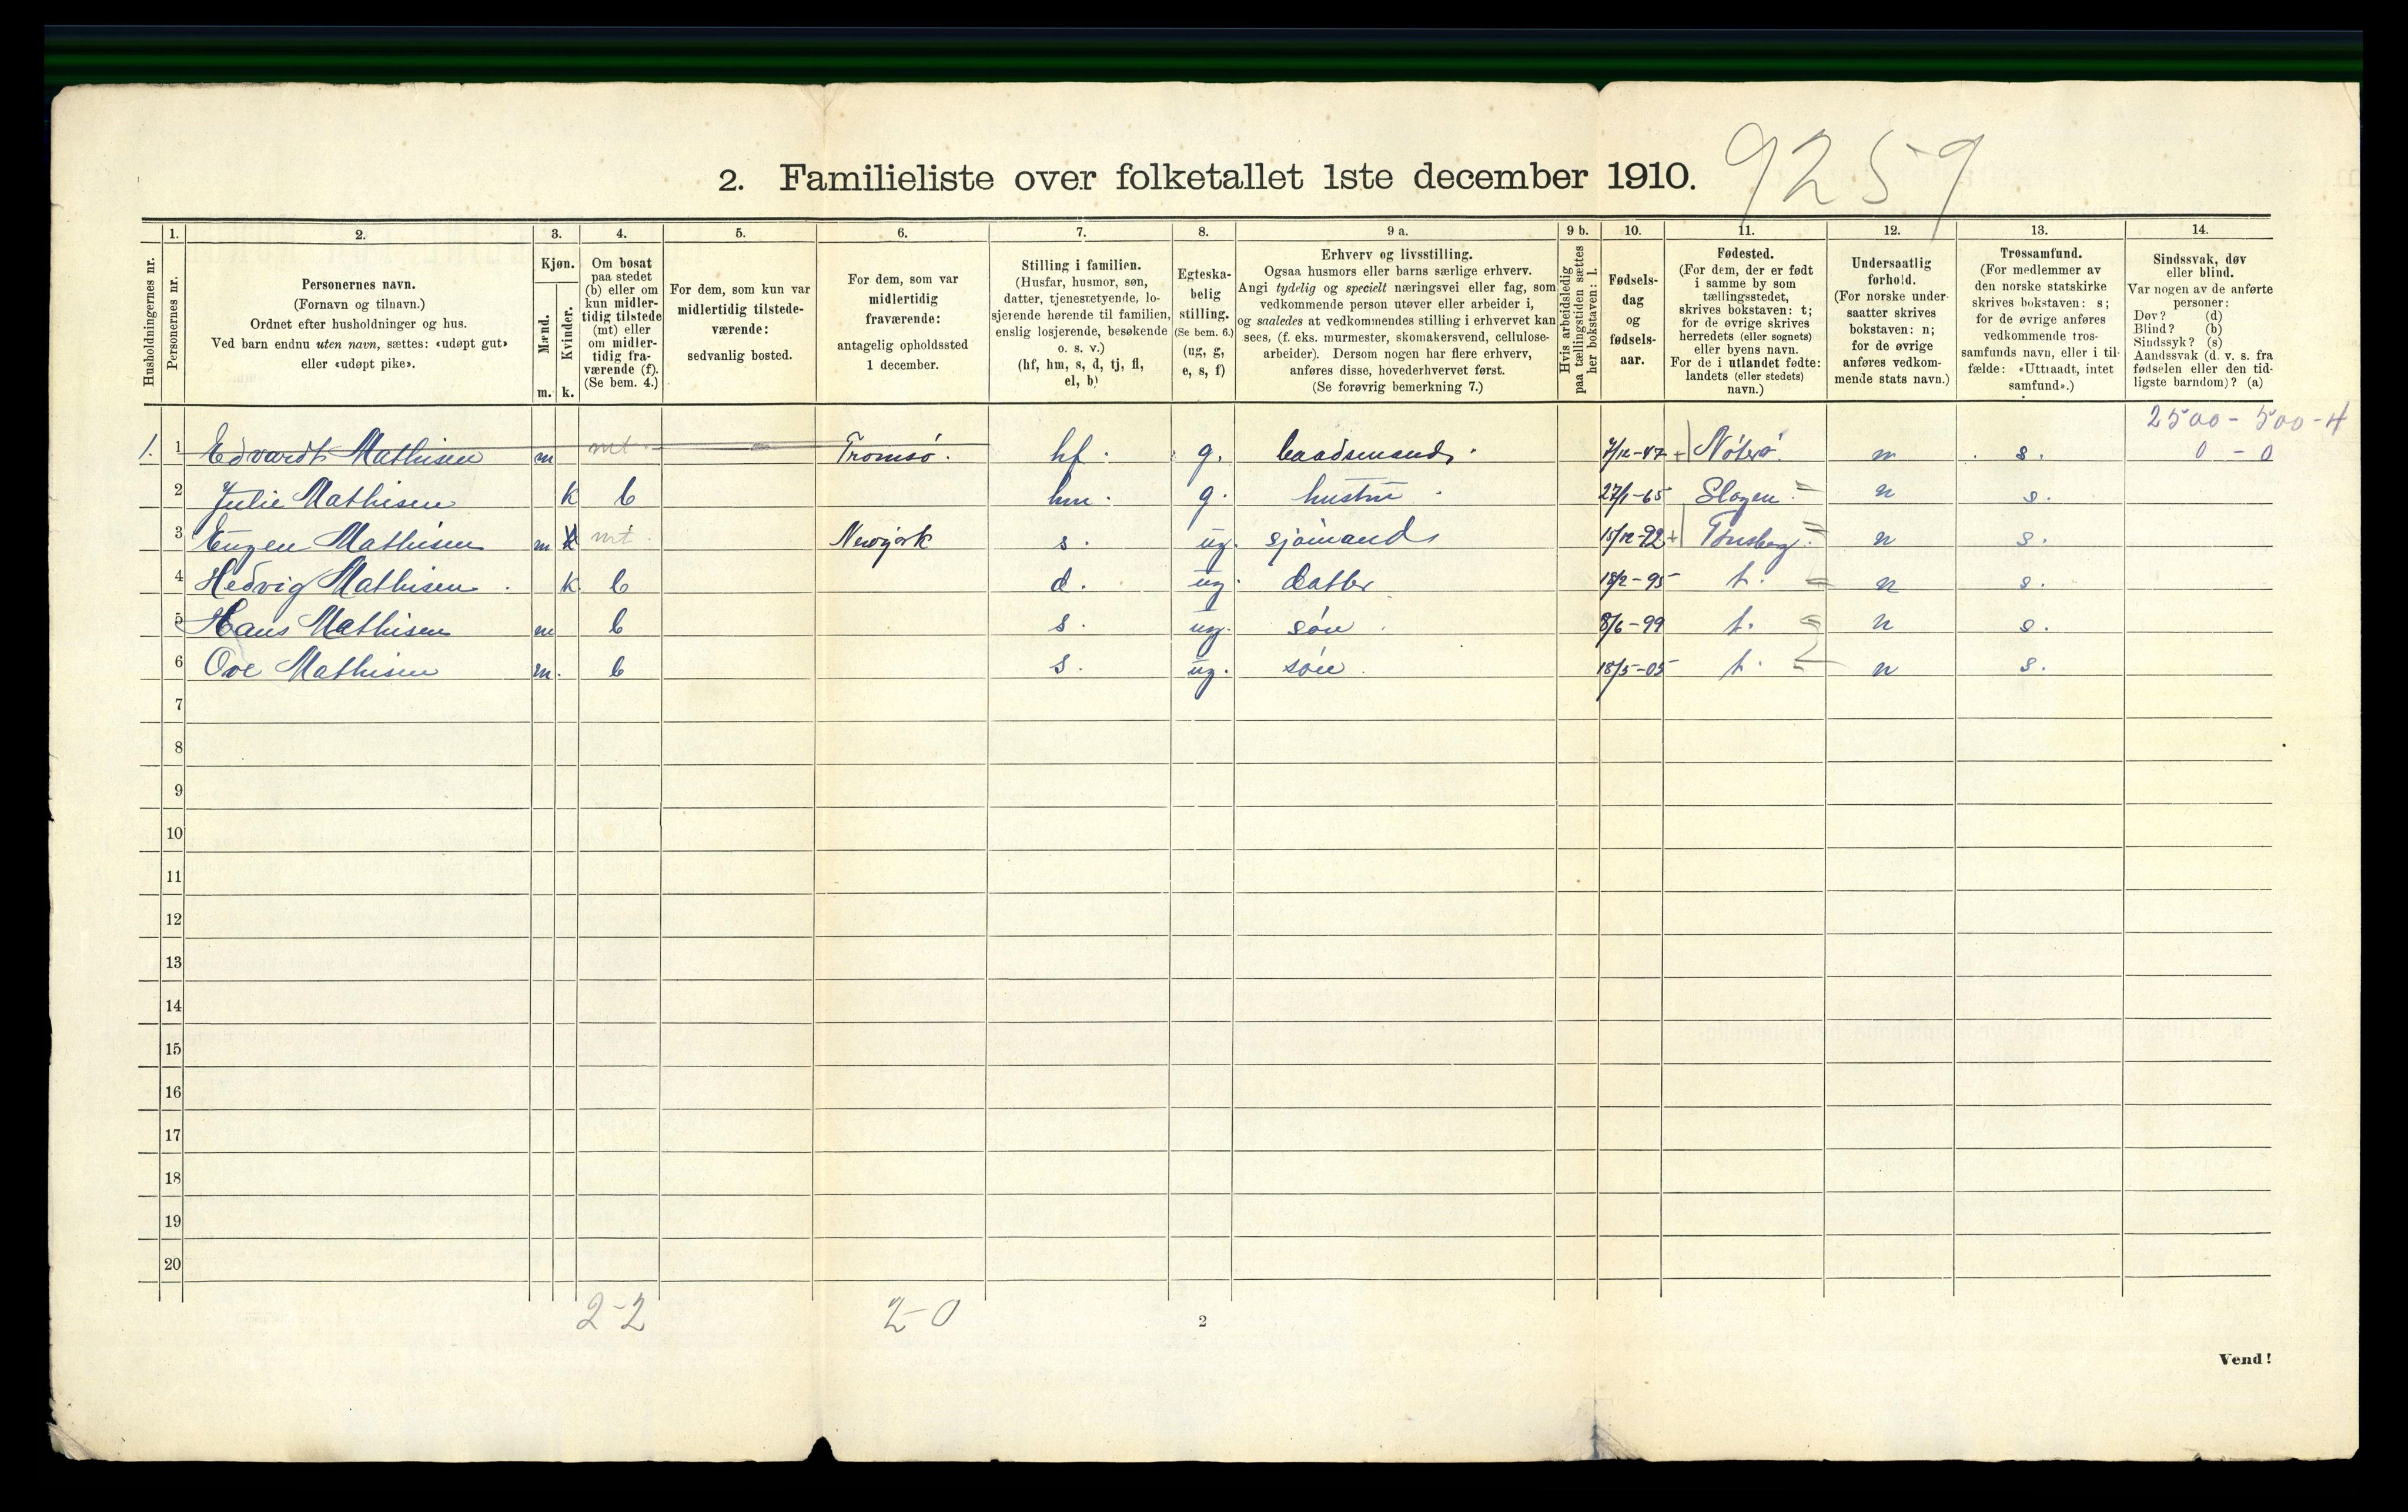 9259
2. Familieliste over folketallet 1ste december 1910.
Husholdningernes nr.
1.
Personernes nr.
2.
Personernes navn.
(Fornavn og tilnavn.)
Ordnet efter husholdninger og hus.
Ved barn endnu uten navn, sættes: «udøpt gut»
eller «udøpt pike».
3.
Kjøn.
Mænd.
m.
Kvinder.
k.
4.
Om bosat
paa stedet
(b) eller om
kun midler-
tidig tilstede
(mt) eller
om midler-
tidig fra-
værende (f).
(Se bem. 4.)
5.
For dem, som kun var
midlertidig tilstede-
værende:
sedvanlig bosted.
6.
For dem, som var
midlertidig
fraværende:
antagelig opholdssted
1 december.
7.
Stilling i familien.
(Husfar, husmor, søn,
datter, tjenestetyende, lo-
sjerende hørende til familien,
enslig losjerende, besøkende
o. s. v.)
(hf, hm, s, d, tj, fl,
el, b)
8.
Egteska-
belig
stilling.
(Se bem. 6.)
(ug, g,
e, s, f)
9 a.
Erhverv og livsstilling.
Ogsaa husmors eller barns særlige erhverv.
Angi tydelig og specielt næringsvei eller fag, som
vedkommende person utøver eller arbeider i,
og saaledes at vedkommendes stilling i erhvervet kan
sees, (f. eks. murmester, skomakersvend, cellulose-
arbeider). Dersom nogen har flere erhverv,
anføres disse, hovederhvervet først.
(Se forøvrig bemerkning 7.)
9 b.
Hvis arbeidsledig
paa tællingstiden sættes
her bokstaven: l.
10.
Fødsels-
dag
og
fødsels-
aar.
11.
Fødested.
(For dem, der er født
i samme by som
tællingsstedet,
skrives bokstaven: t;
for de øvrige skrives
herredets (eller sognets)
eller byens navn.
For de i utlandet fødte:
landets (eller stedets)
navn.)
12.
Undersaatlig
forhold.
(For norske under-
saatter skrives
bokstaven: n;
for de øvrige
anføres vedkom-
mende stats navn.)
13.
Trossamfund.
(For medlemmer av
den norske statskirke
skrives bokstaven: s;
for de øvrige anføres
vedkommende tros-
samfunds navn, eller i til-
fælde: «Uttraadt, intet
samfund».)
14.
Sindssvak, døv
eller blind.
Var nogen av de anførte
personer:
Døv? (d)
Blind? (b)
Sindssyk? (s)
Aandssvak (d. v. s. fra
fødselen eller den tid-
ligste barndom)? (a)
2500 - 500 - 4
1. 1 Edvardt Mathisen m mt Tromsö. hf. g. baadsmand. 7/12-47 + Nöterö. n s. 0 - 0
2 Julie Mathisen k b hm. g. hustru 27/1-65 Slagen = n s.
3 Eugen Mathisen m k mt Newyork s. ug. sjömand 15/12-92 + Tönsberg = n s.
4 Hedvig Mathisen k b d. ug. datter 18/2-95 t. = n s.
5 Hans Mathisen m b s. ug. sön 8/6-99 t. = n s.
6 Ove Mathisen m. b s. ug. sön 18/5-05 t. = n s.
7
8
9
10
11
12
13
14
15
16
17
18
19
20
2-2 2-0
2
Vend!